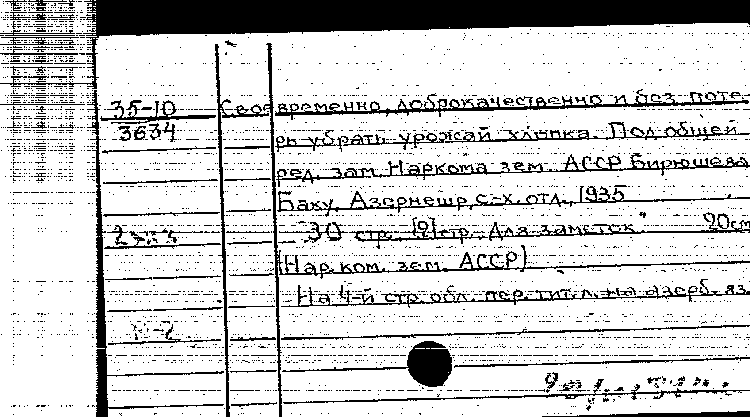 35-10 Своевременно, доброкачественно и без поте-
3634 рь убрать урожай хлопка. Под общей
ред. зам. Наркома зем. АССР Бирюшева
Баку, Азернешр, с-х. отд., 1935
30 стр. [2] стр. "Для заметок" 20см
(Нар. ком. зем. АССР)
На 4-й стр. обл. пер. тит. л. на азерб. яз.